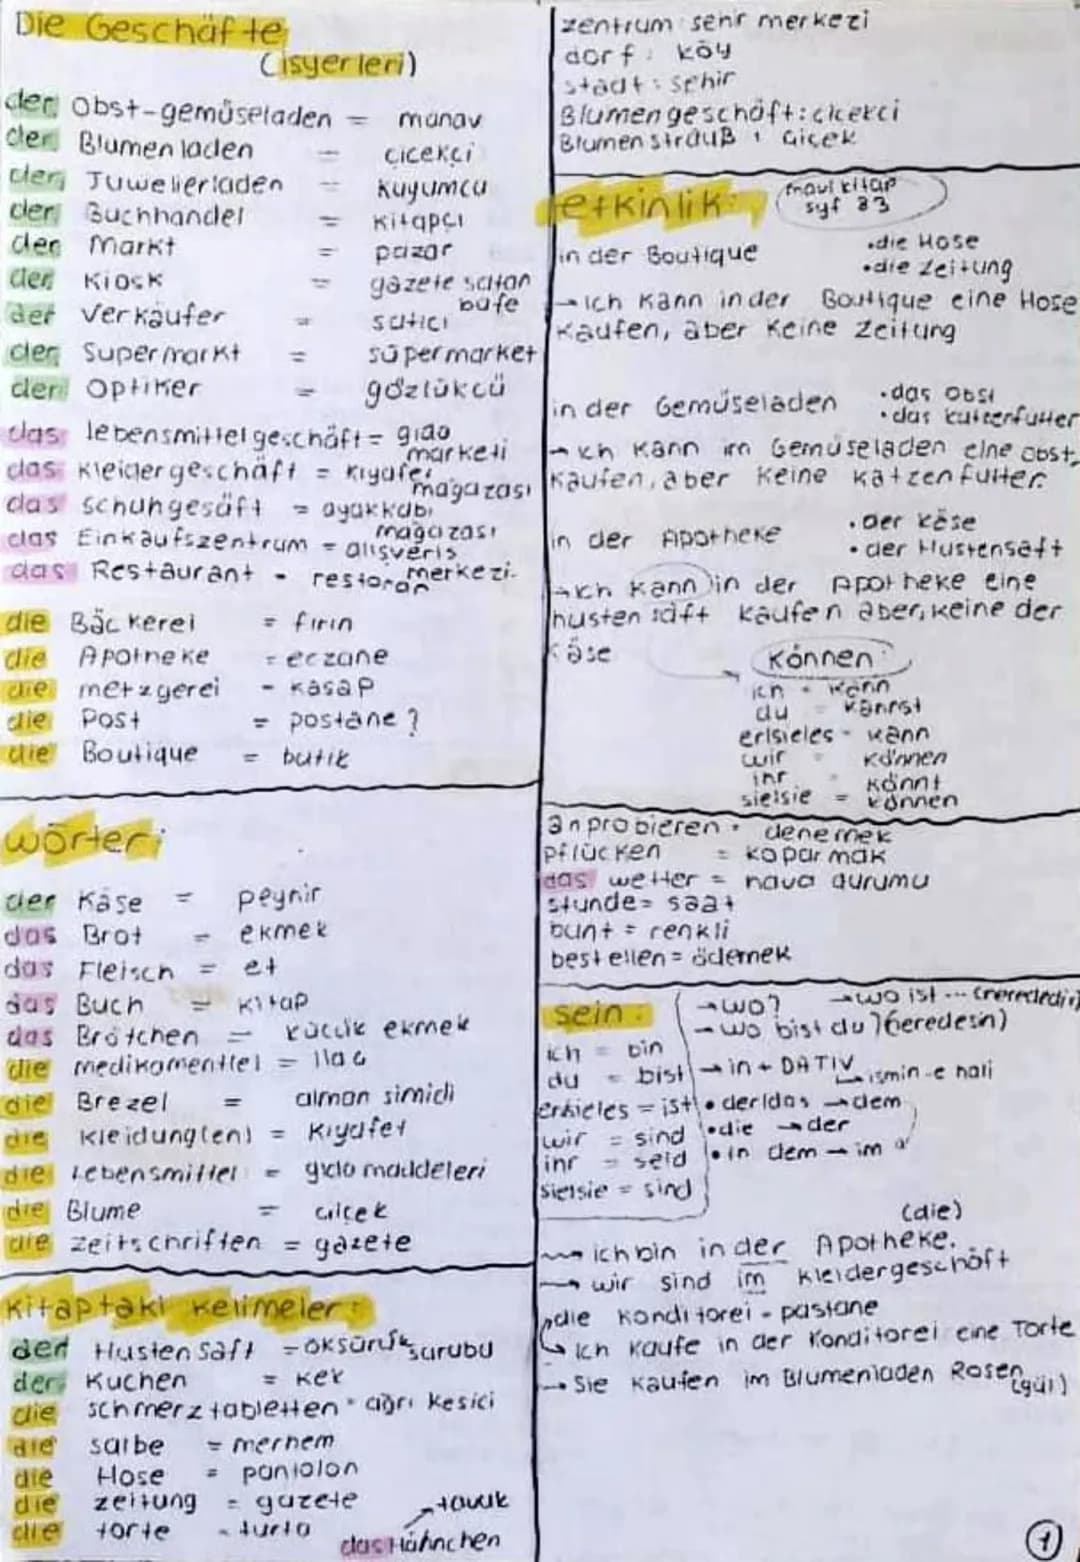 Die Geschäfte
(isyerleri)
der Obst-gemüseladen = manav
der Blumenladen = çicekçi
der Juwelierladen = kuyumcu
der Buchhandel = kitapçı
der Markt = pazar
der Kiosk = gazete satan
büfe
der Verkäufer = satici
der Supermarkt = süpermarket
der Optiker = gözlükcü
das lebensmittelgeschäft = gıda
marketi
das Kleidergeschäft = kıyafet
magazası
das schuhgesäft = ayakkabı
magazası
das Einkaufszentrum = alisveris
merkezi.
das Restaurant - restoran
die Bäckerei = fırın
die Apotheke = eczane
die metzgerei - kasap
die Post = postane?
die Boutique = butik
wörter:
der Käse = peynir
das Brot = ekmek
das Fleisch = et
das Buch = kitap
das Brötchen = kücük ekmek
die medikamentlel = ilaç
die Brezel = alman simidi
die Kleidung(en) = kıyafet
die Lebensmittel = gıda maddeleri
die Blume = çiçek
die Zeitschriften = gazete
kitaptaki kelimeler:
der Hustensaft = öksürük surubu
der Kuchen = kek
die schmerztabletten = ağrı kesici
die salbe = merhem
die Hose = pantolon
die zeitung = gazete
die torte = turta
→ tavuk
das Hähnchen
zentrum: sehir merkezi
dorf: köy
stadt: sehir
Blumengeschäft: cicekci
Blumenstrauß: çiçek
etkinlik:
mavi kitap
syf 83
in der Boutique
•die Hose
•die Zeitung
→ Ich kann in der Boutique eine Hose
kaufen, aber keine Zeitung
in der Gemüseladen
•das Obst
•das katzenfutter
→ Ich kann im Gemüseladen eine obst
kaufen, aber keine katzenfutter.
in der Apotheke
•der Käse
•der Hustensaft
→ Ich kann in der Apotheke eine
hustensaft kaufen aber, keine der
käse
können
ich = kann
du = kannst
er|sie|es - kann
wir = können
ihr = könnt
sie|sie = können
anprobieren = denemek
pflücken = koparmak
das wetter = hava durumu
stunde = saat
bunt = renkli
bestellen = ödemek
sein:
ich = bin
du = bist
er|sie|es = ist
wir = sind
ihr = seid
sie|sie = sind
→ wo? → wo ist ... (nerededir)
→ wo bist du? (neredesin)
→ in + DATIV → ismin -e hali
• der|das → dem
• die → der
• in dem → im
(die)
→ ich bin in der Apotheke.
→ wir sind im Kleidergeschäft
die konditorei - pastane
→ Ich kaufe in der Konditorei eine Torte
→ Sie kaufen im Blumenladen Rosen
(gül)
1